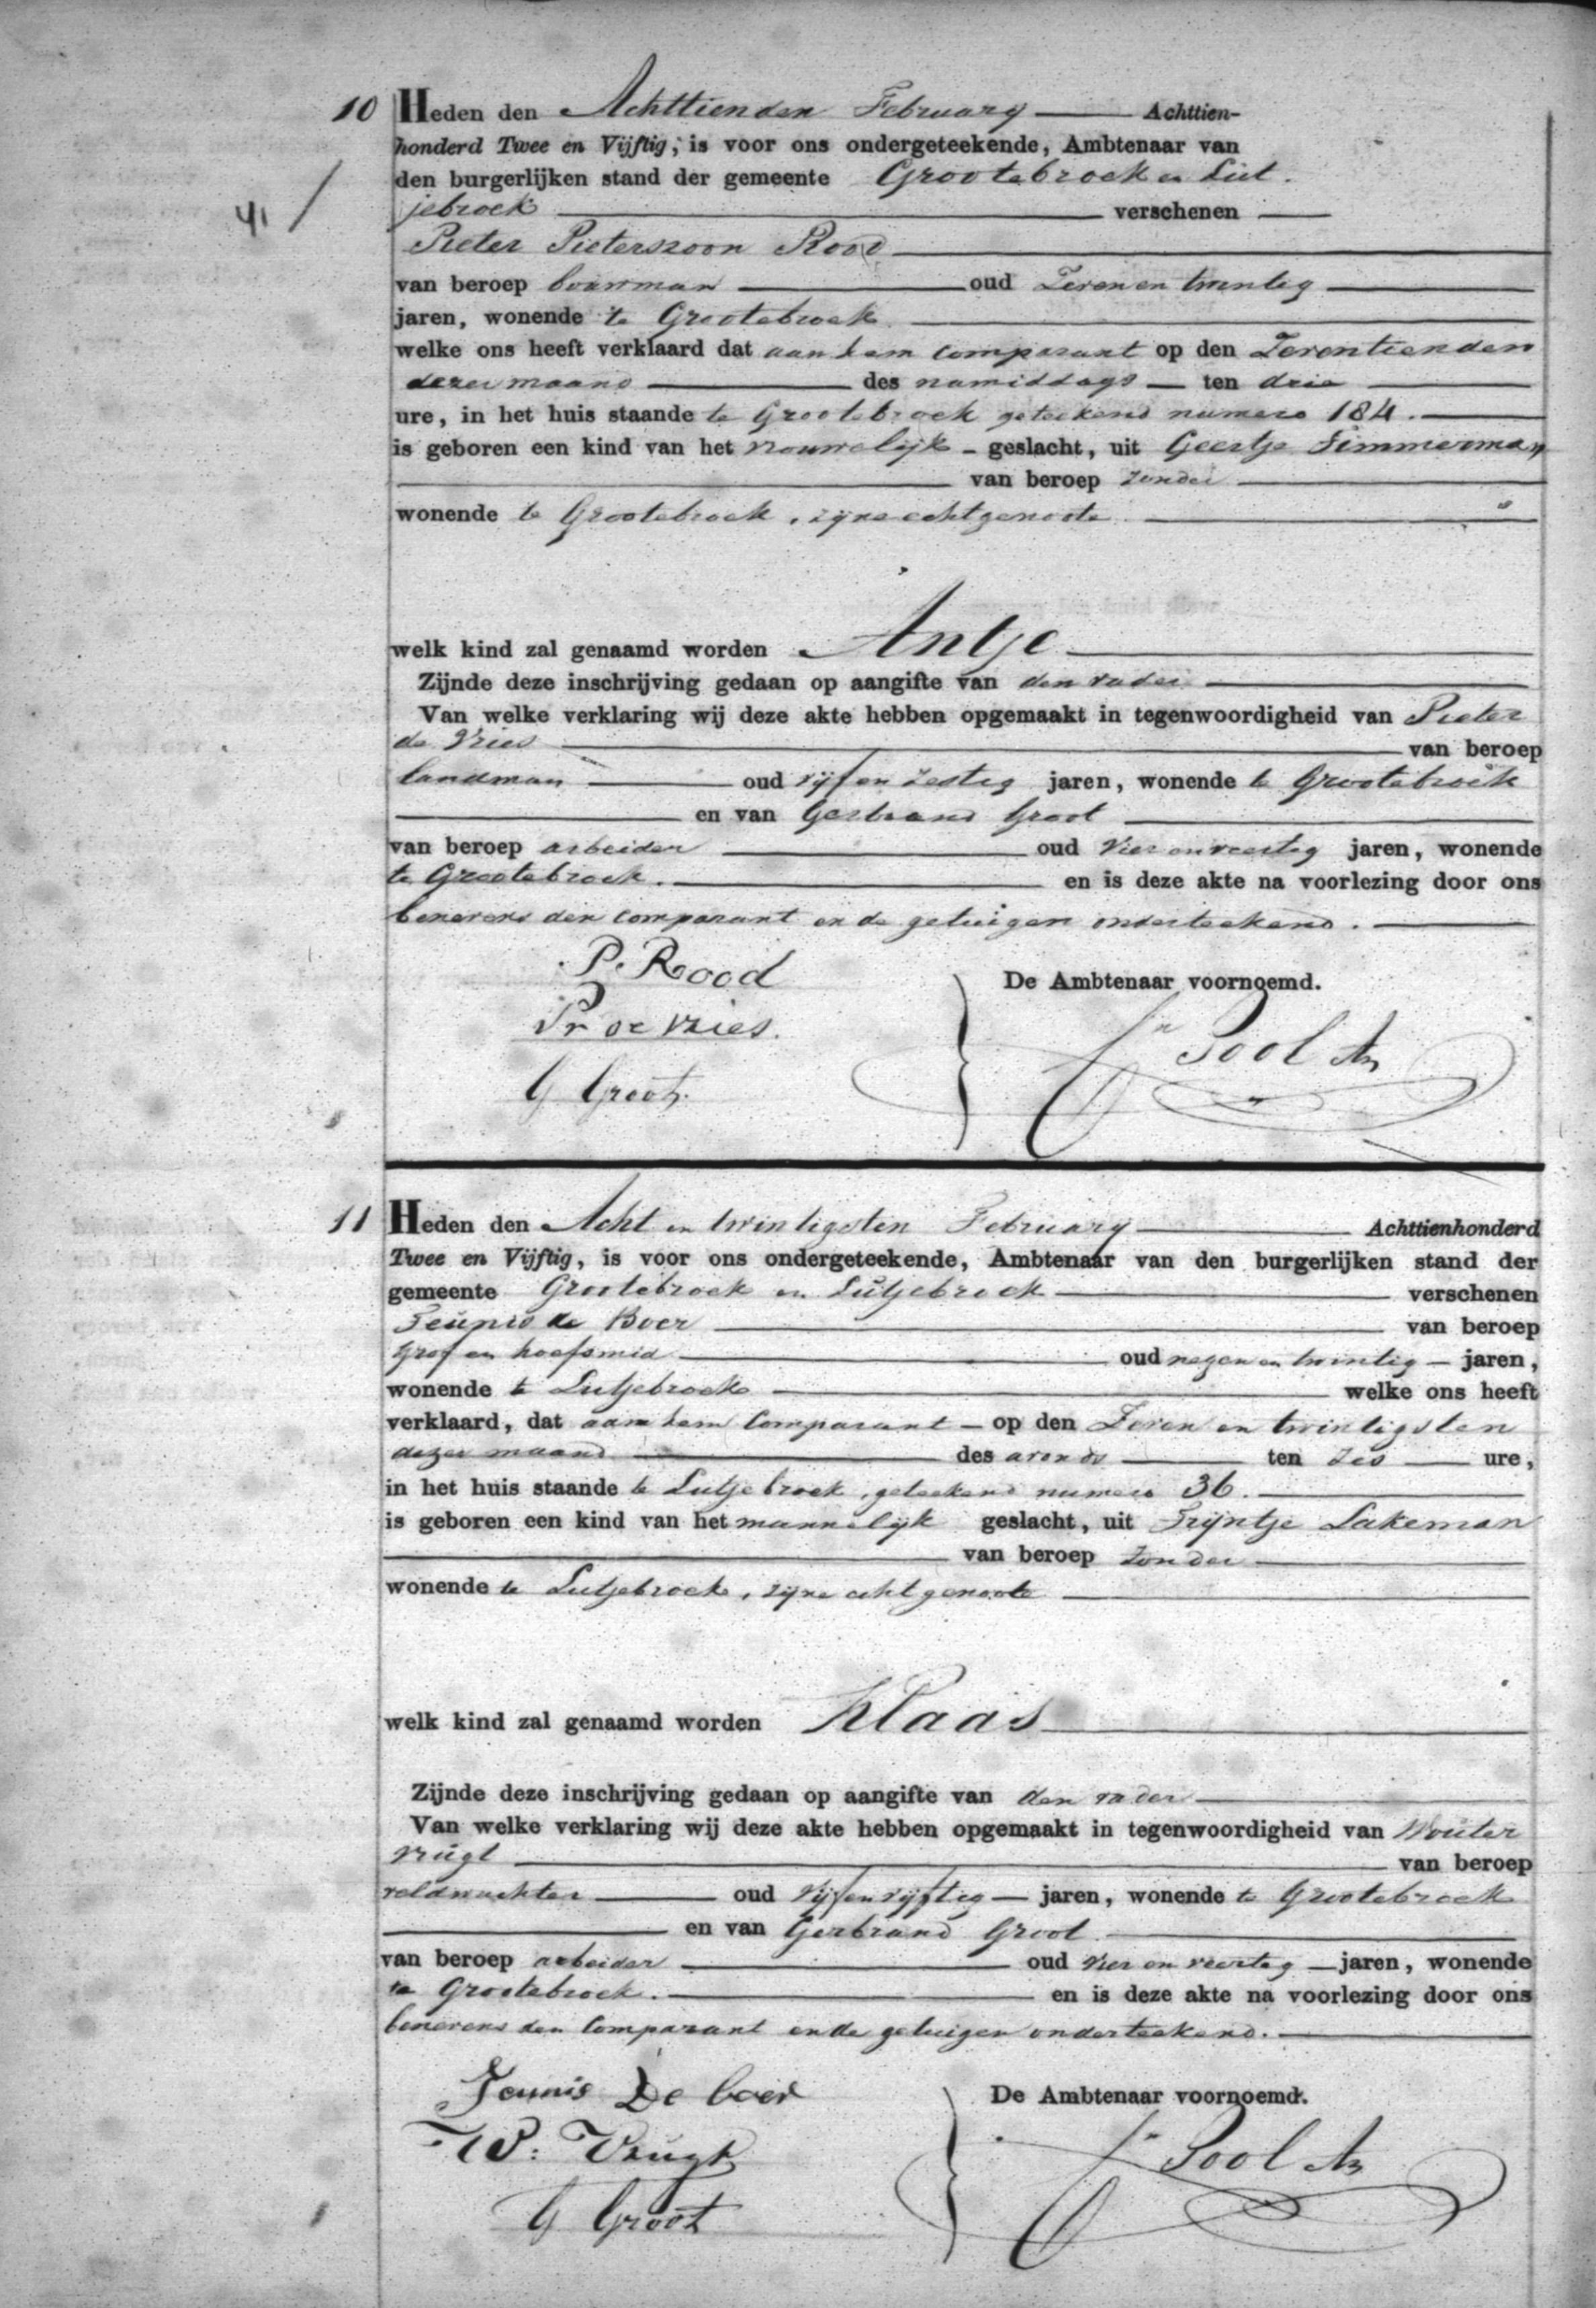 10 Heden den Achttienden February Achttien-
honderd Twee en Vijftig, is voor ons ondergeteekende, Ambtenaar van
den burgerlijken stand der gemeente Grootebroek en Lut-
41 / jebroek verschenen
Pieter Pieterszoon Rood
van beroep bouwman oud Zeven en twintig
jaren, wonende te Grootebroek
welke ons heeft verklaard dat aan hem comparant op den Zeventienden
dezer maand des namiddags ten drie
ure, in het huis staande te Grootebroek geteekend numero 184.
is geboren een kind van het vrouwelijk geslacht, uit Geertje Timmerman
van beroep zonder
wonende te Grootebroek, zijne echtgenoote
welk kind zal genaamd worden Antje
Zijnde deze inschrijving gedaan op aangifte van den vader
Van welke verklaring wij deze akte hebben opgemaakt in tegenwoordigheid van Pieter
de Vries van beroep
landman oud vijf en zestig jaren, wonende te Grootebroek
en van Gerbrand Groot
van beroep arbeider oud vier en veertig jaren, wonende
te Grootebroek. en is deze akte na voorlezing door ons
benevens den comparant en de getuigen onderteekend.
P. Rood
De Ambtenaar voornoemd.
Pr de vries.
Jn Pool Az
G Groot.
11 Heden den Acht en twintigsten February Achttienhonderd
Twee en Vijftig, is voor ons ondergeteekende, Ambtenaar van den burgerlijken stand der
gemeente Grootebroek en Lutjebroek verschenen
Teunis de Boer van beroep
Grof en hoefsmid oud negen en twintig jaren,
wonende te Lutjebroek welke ons heeft
verklaard, dat aan hem Comparant op den Zeven en twintigsten
dezer maand des avonds ten zes ure,
in het huis staande te Lutjebroek, geteekend numero 36.
is geboren een kind van het mannelijk geslacht, uit Trijntje Lakeman
van beroep zonder
wonende te Lutjebroek, zijne echtgenoote
welk kind zal genaamd worden Klaas
Zijnde deze inschrijving gedaan op aangifte van den vader
Van welke verklaring wij deze akte hebben opgemaakt in tegenwoordigheid van Wouter
Vrugt van beroep
veldwachter oud vijf en vijftig jaren, wonende te Grootebroek
en van Gerbrand Groot
van beroep arbeider oud vier en veertig jaren, wonende
te Grootebroek. en is deze akte na voorlezing door ons
benevens den Comparant en de getuigen onderteekend.
Teunis De boer
De Ambtenaar voornoemd.
W: Vrugt
Jn Pool Az
G Groot